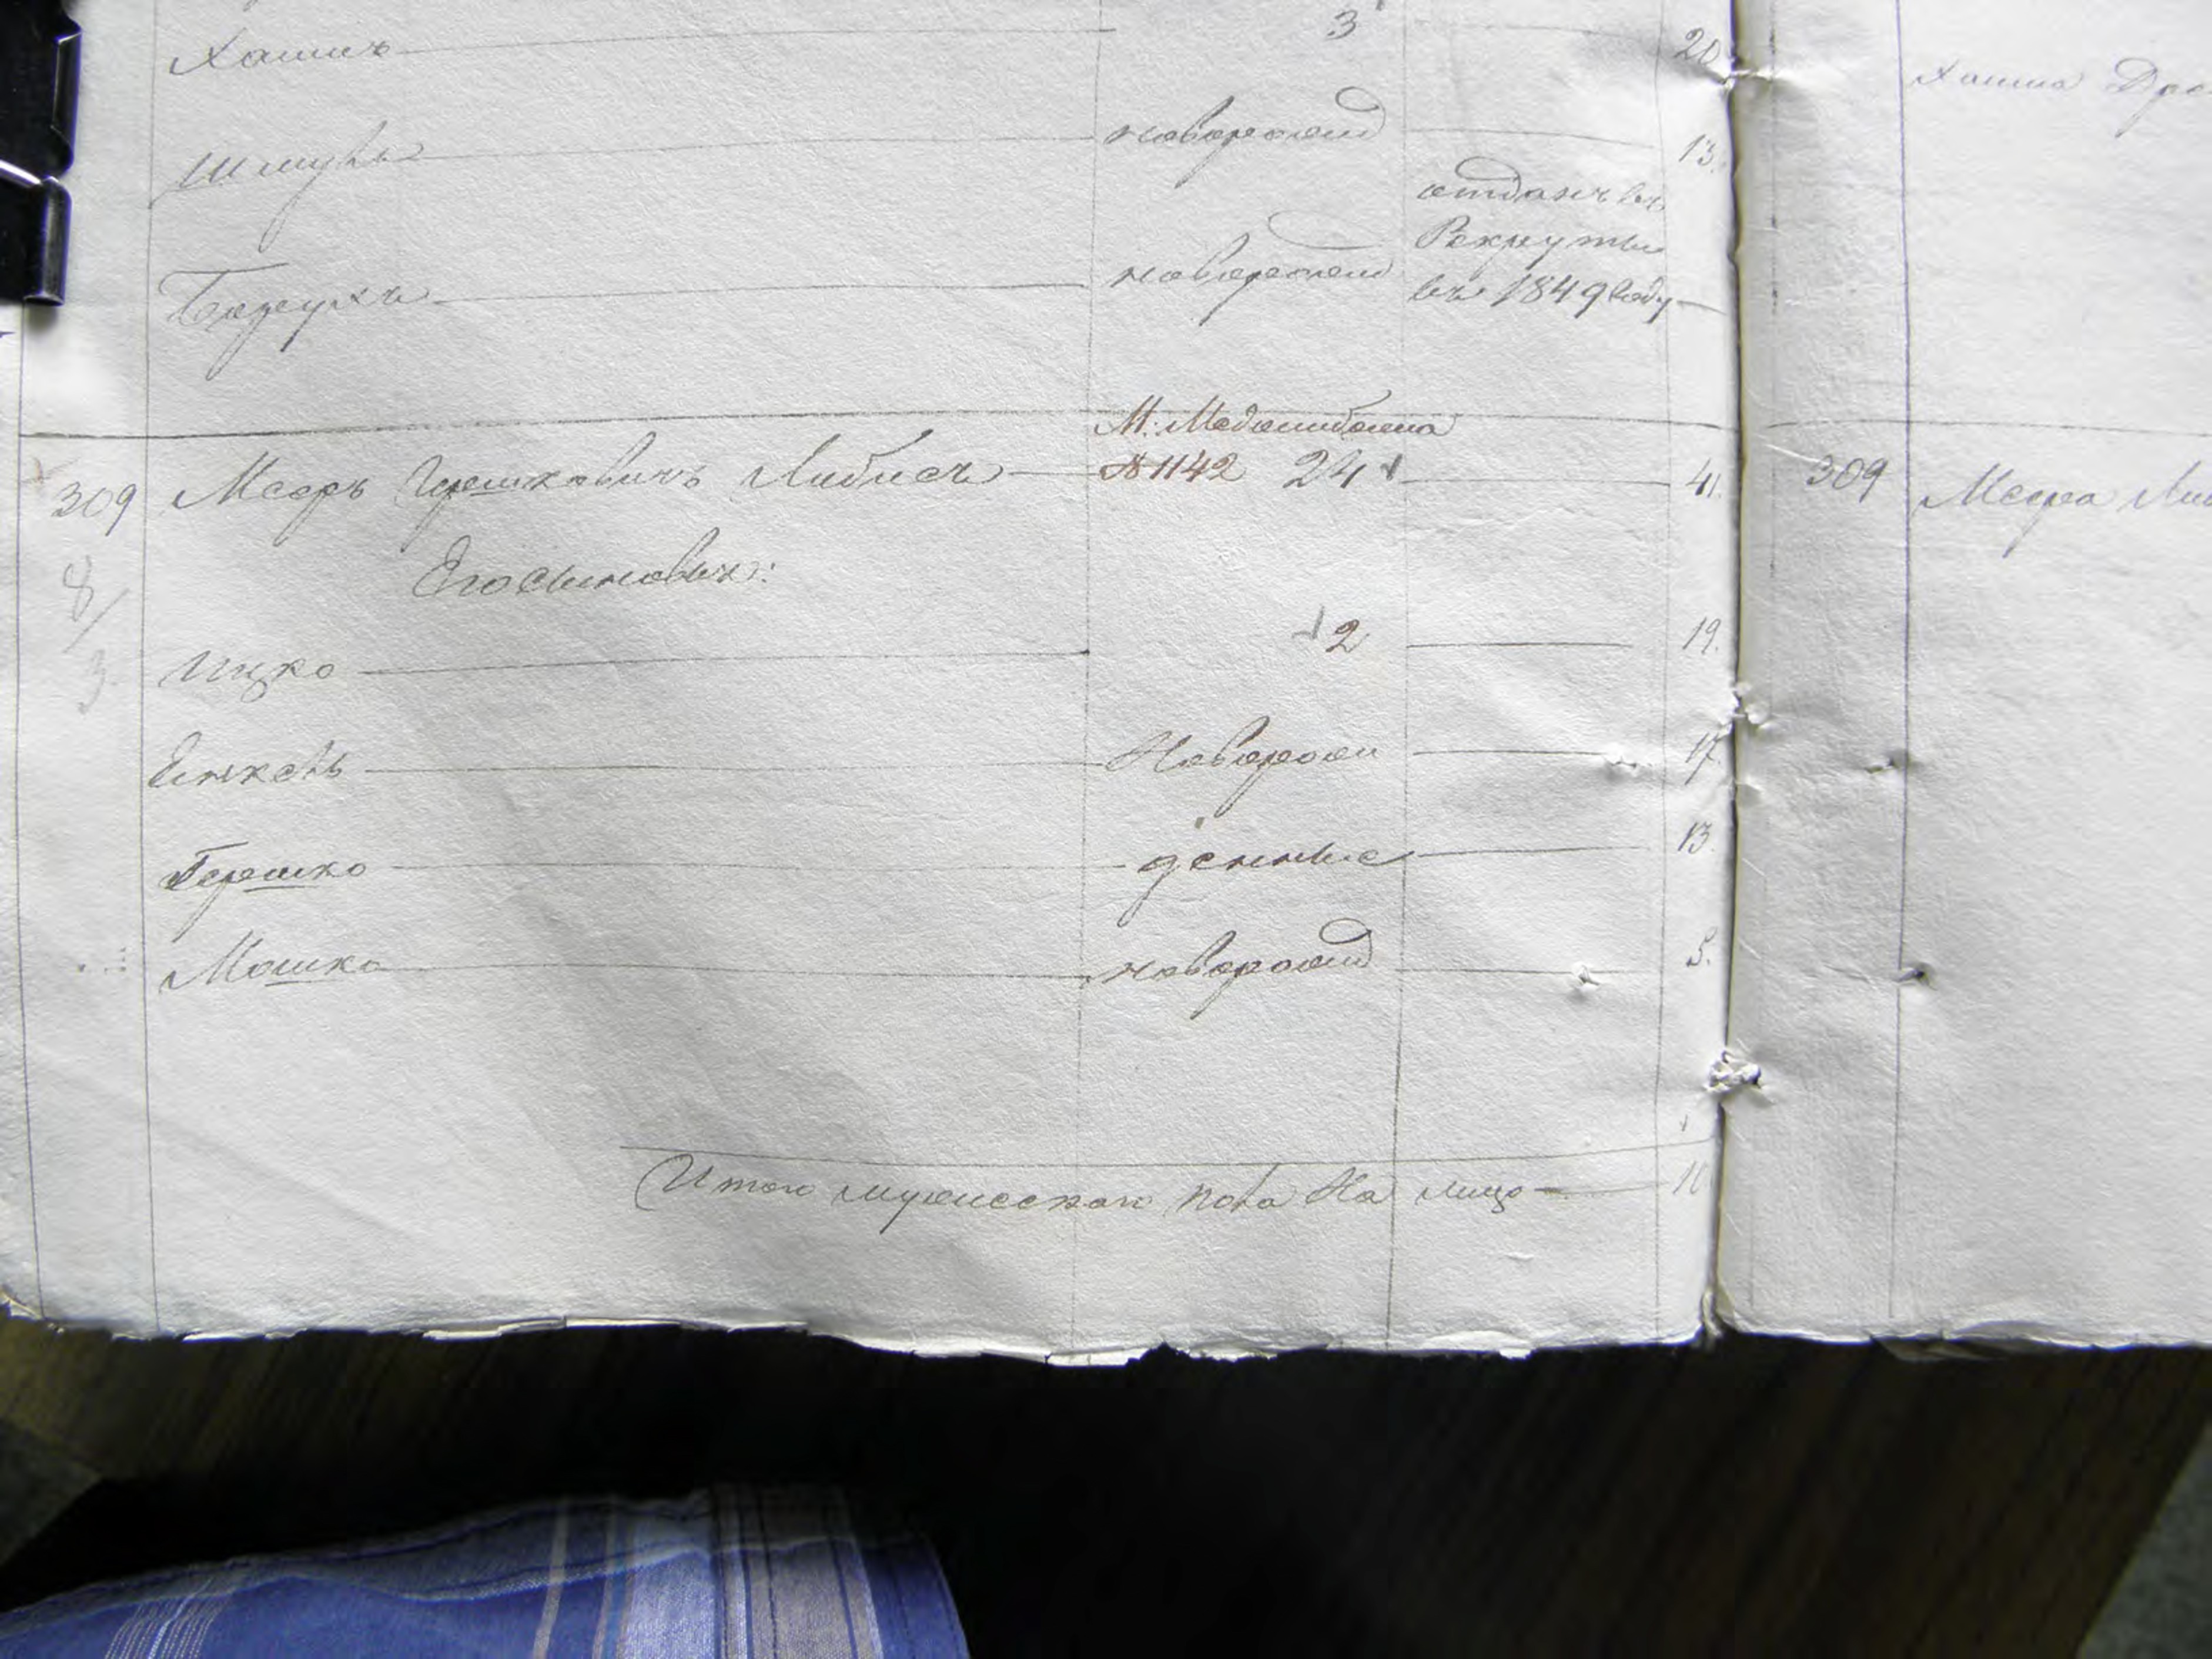 Хаимъ 3 20
Шмуль новорожд 13.
отданъ въ
Рекруты
Берухъ новорожд въ 1849 году
М: Меджибожа
309 Мееръ Гершковичъ Либисъ №1142 24 41.
Его сыновья:
8/3
Ицко 2 19.
Еинкель Новорож 17.
Гершко денные 13.
Мошко новорожд 5.
Итого мужескаго пола На лицо
Хаима
309 Меера